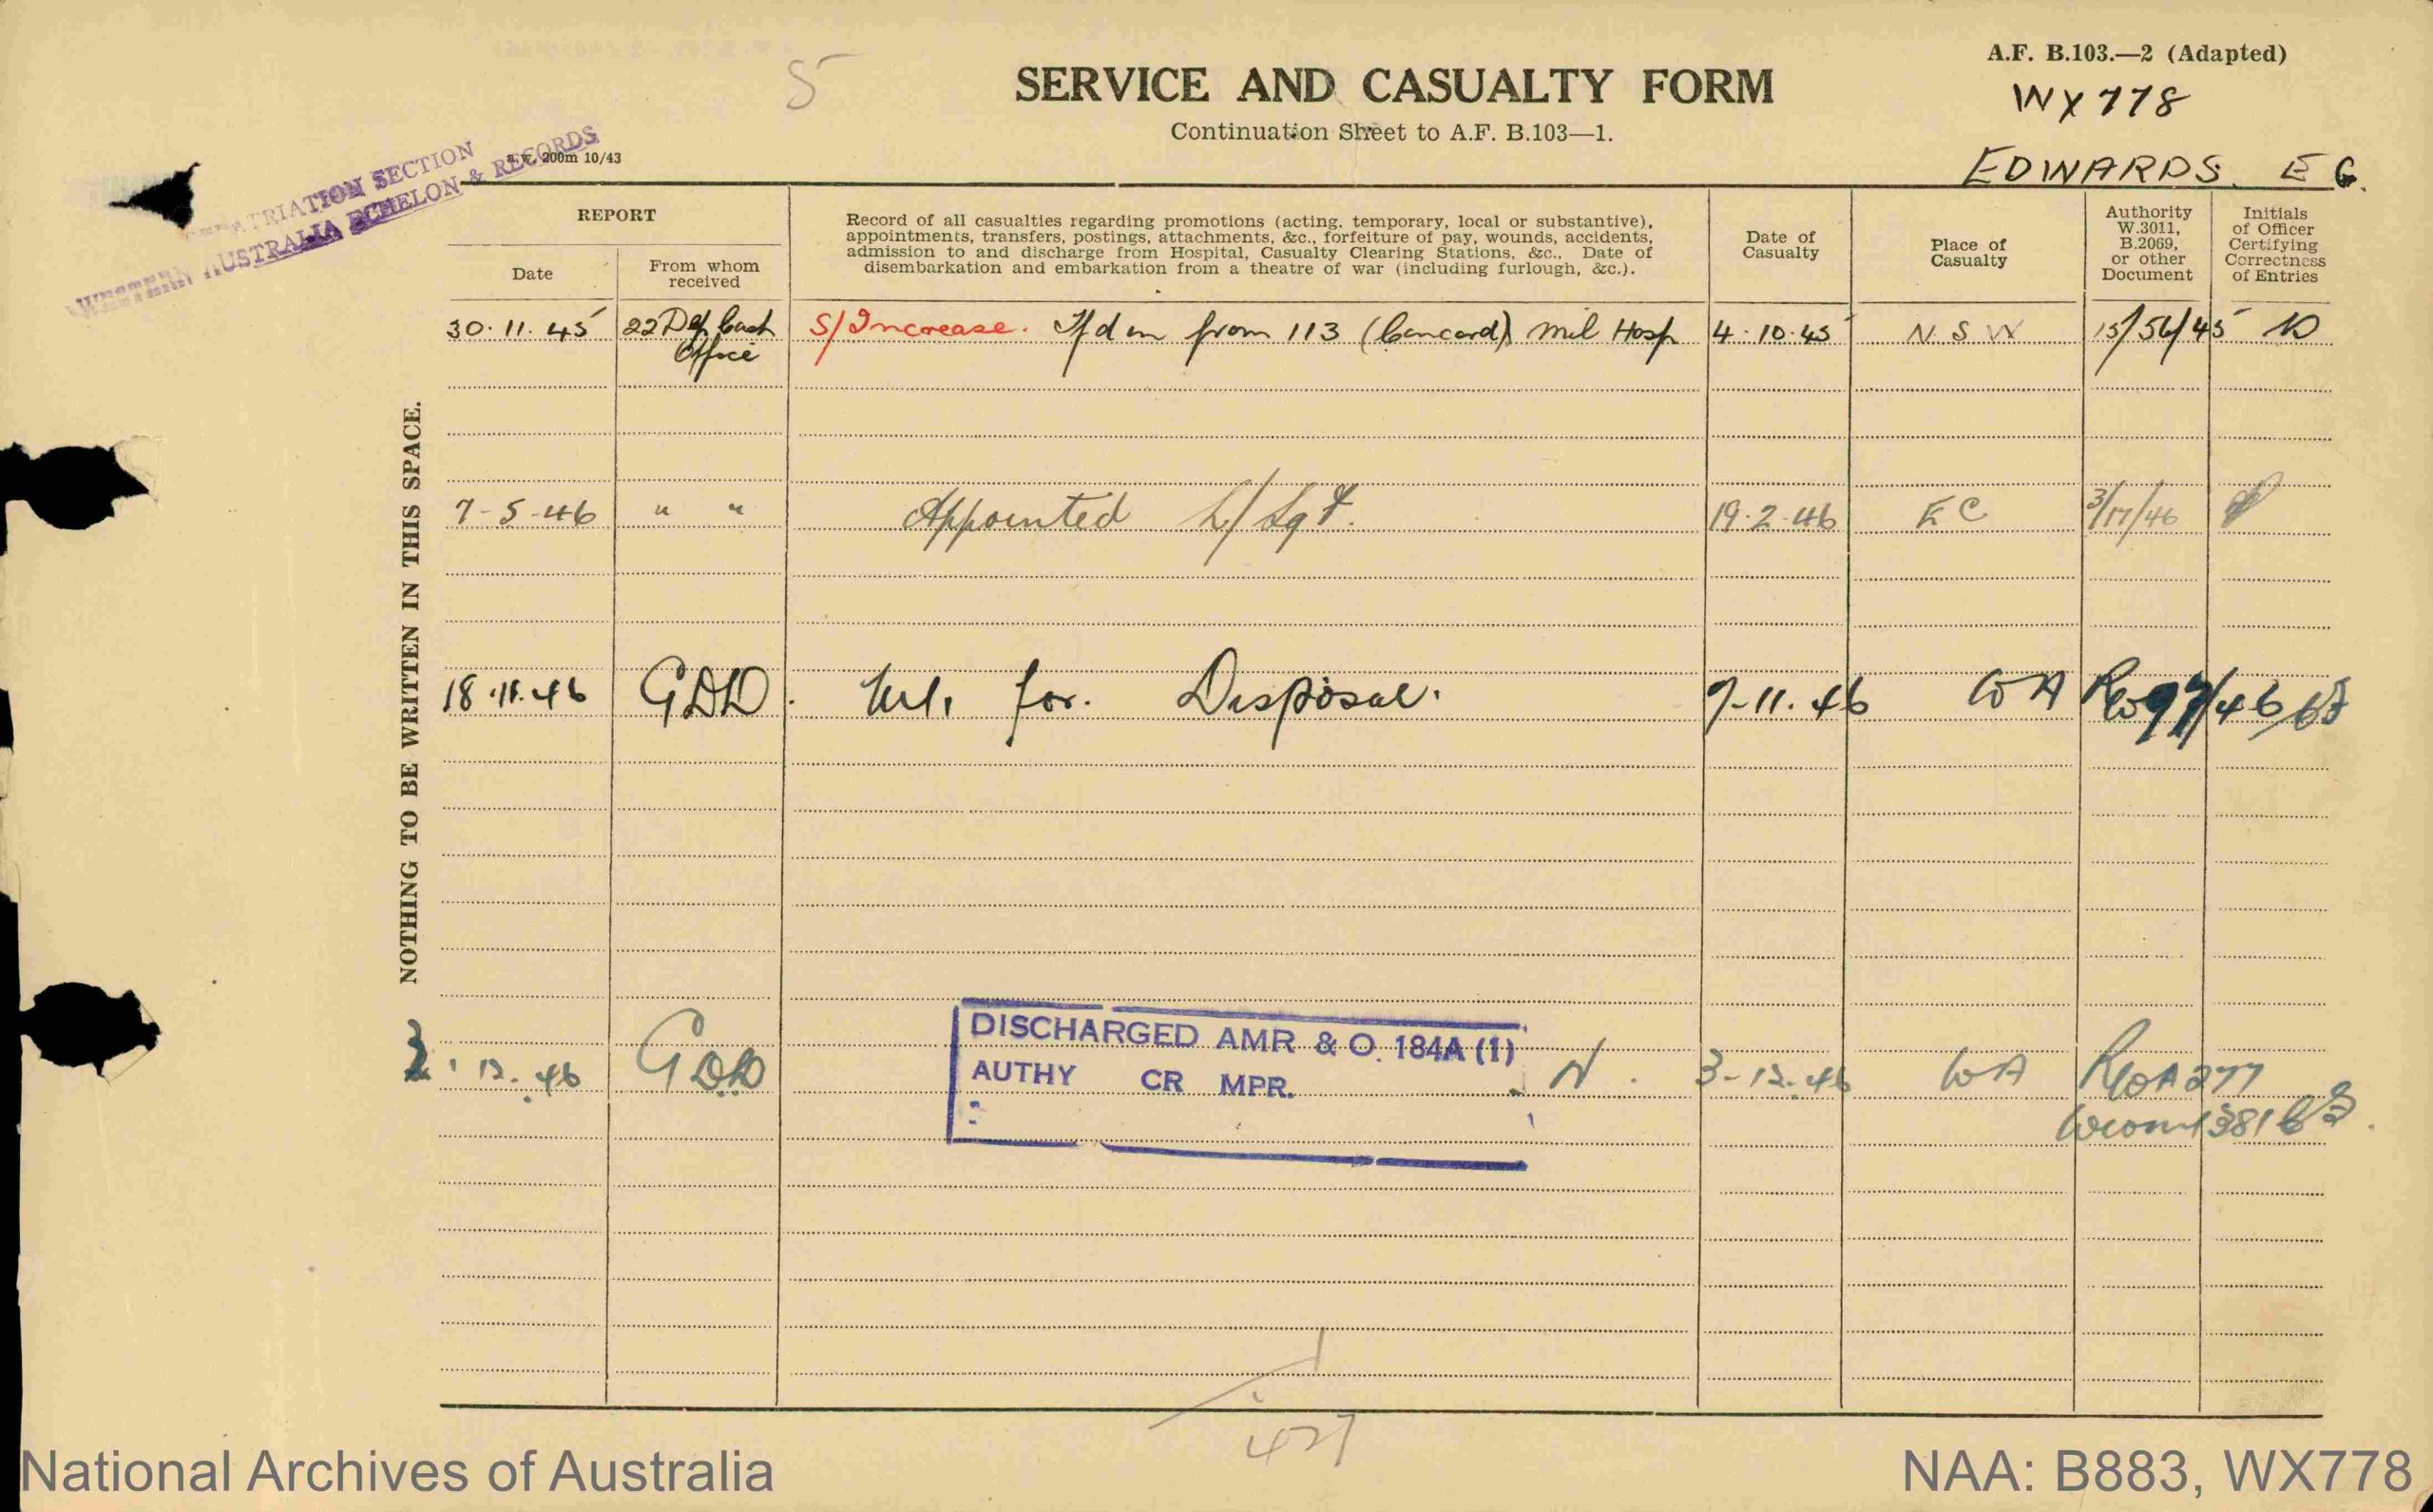 5
A.F. B.103.—2 (Adapted)
SERVICE AND CASUALTY FORM
WX778
Continuation Sheet to A.F. B.103—1.
EDWARDS. E G.
a.w. 200m 10/43
TRIATION SECTION
WESTERN AUSTRALIA ECHELON & RECORDS
NOTHING TO BE WRITTEN IN THIS SPACE.
REPORT
Date
From whom received
Record of all casualties regarding promotions (acting, temporary, local or substantive),
appointments, transfers, postings, attachments, &c., forfeiture of pay, wounds, accidents,
admission to and discharge from Hospital, Casualty Clearing Stations, &c., Date of
disembarkation and embarkation from a theatre of war (including furlough, &c.).
Date of Casualty
Place of Casualty
Authority W.3011, B.2069, or other Document
Initials of Officer Certifying Correctness of Entries
30.11.45 22 Dep Cash S/Increase. Tfd in from 113 (Concord) Mil Hosp 4.10.45 N.S.W 15/56/45
Office
7-5-46 " " Appointed L/Sgt. 19.2.46 3/17/46
18.11.46 GDD. for Disposal. 7-11.46 WA
12.46 GDD
DISCHARGED AMR & O. 184A (1)
AUTHY CR MPR.
N. 3-12-46 WA
427
National Archives of Australia
NAA: B883, WX778